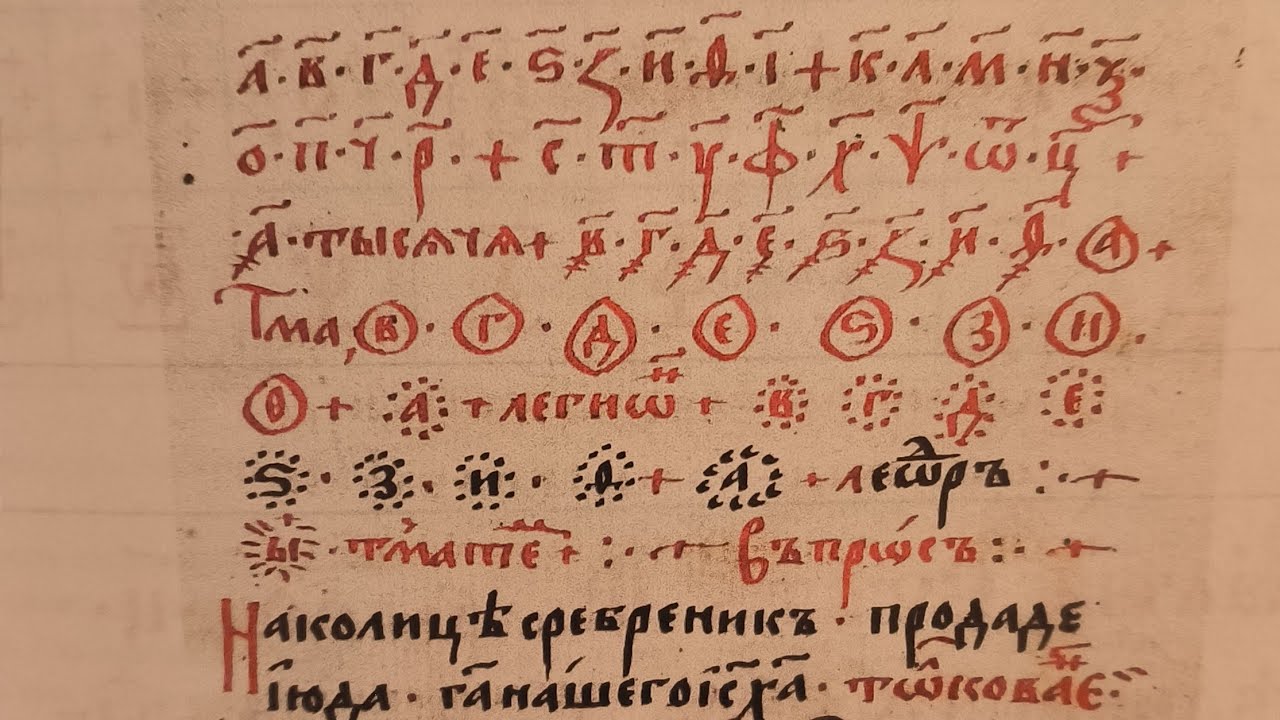 а҃ · в҃ · г҃ · д҃ · е҃ · ѕ҃ · з҃ · и҃ · ѳ҃ · і҃ + к҃ · л҃ · м҃ · н҃ · ѯ҃ ·
о҃ · п҃ · ч҃ · р҃ · + с҃ · т҃ · у҃ · ф҃ · х҃ · ѱ҃ · ѿ · ц҃ +
· ҂а҃ · тысѧчѧ + ҂в҃ · ҂г҃ · ҂д҃ · ҂е҃ · ҂ѕ҃ · ҂з҃ · ҂и҃ · ҂ѳ҃ · а⃝ +
Тма, в⃝ · г⃝ · д⃝ · е⃝ · ѕ⃝ · з⃝ · и⃝ ·
ѳ⃝ + а҈ + легиѡн + в҈ г҈ д҈ е҈
ѕ҈ · з҈ · и҈ · ѳ҈ + а҉ + леѡдръ :· +
· :· + въпрѡ́съ :· +
Наколицѣ сребреникъ · продаде
і҆юда · га҃ на́шего і҃с х҃а ·